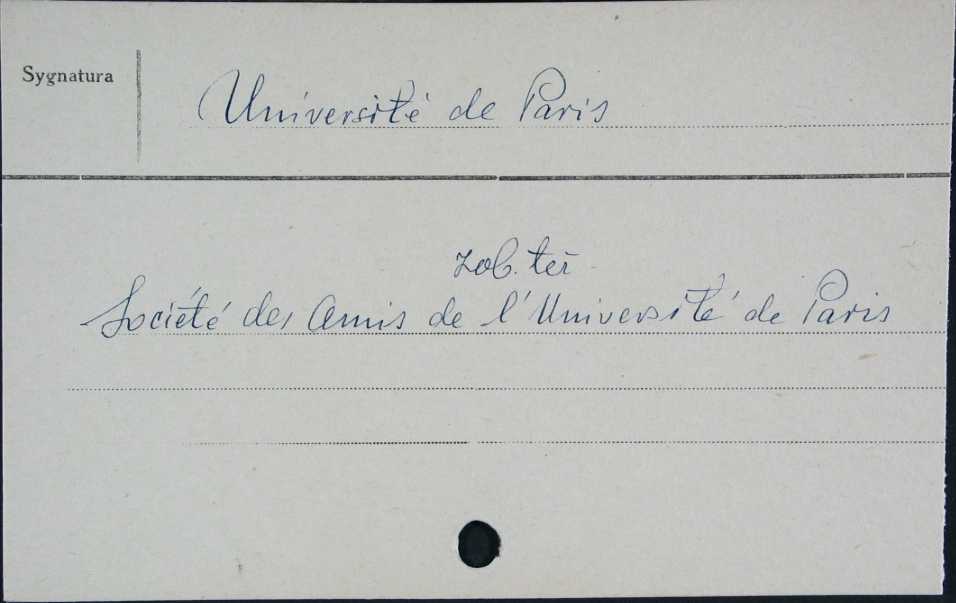 Sygnatura
Université de Paris
zob. też
Société des Amis de l'Université de Paris